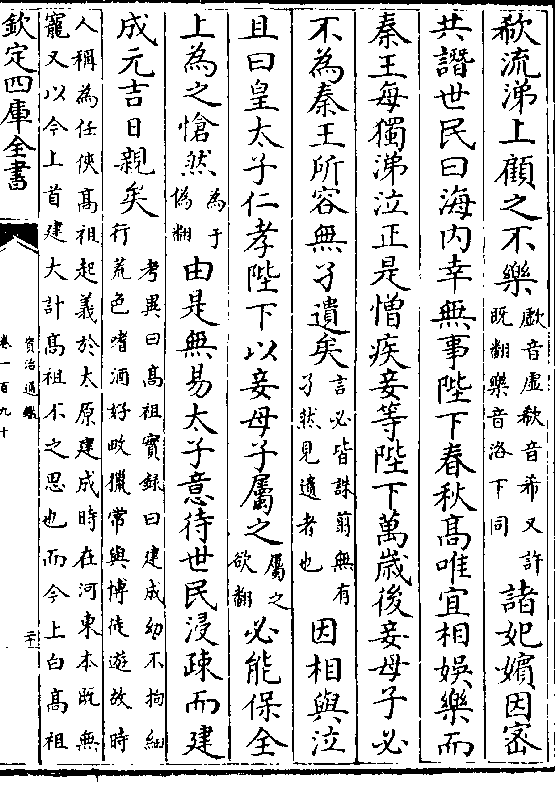 欷流涕上顧之不樂歔音虚欷音希又許
既翻樂音洛下同諸妃嬪因宻
共譖世民曰海内幸無事陛下春秋髙唯宜相娛樂而
秦王每獨涕泣正是憎疾妾等陛下萬歳後妾母子必
不為秦王所容無孑遺矣言必皆誅翦無有
孑然見遺者也因相與泣
且曰皇太子仁孝陛下以妾母子屬之屬之
欲翻必能保全
上為之愴然為于
偽翻由是無易太子意待世民浸疎而建
成元吉日親矣考異曰髙祖實録曰建成幼不拘細
行荒色嗜酒好畋獵常與博徒遊故時
人稱為任俠髙祖起義於太原建成時在河東本既無
寵又以今上首建大計髙祖不之思也而今上白髙祖
欽定四庫全書
資治通鑑
卷一百九十